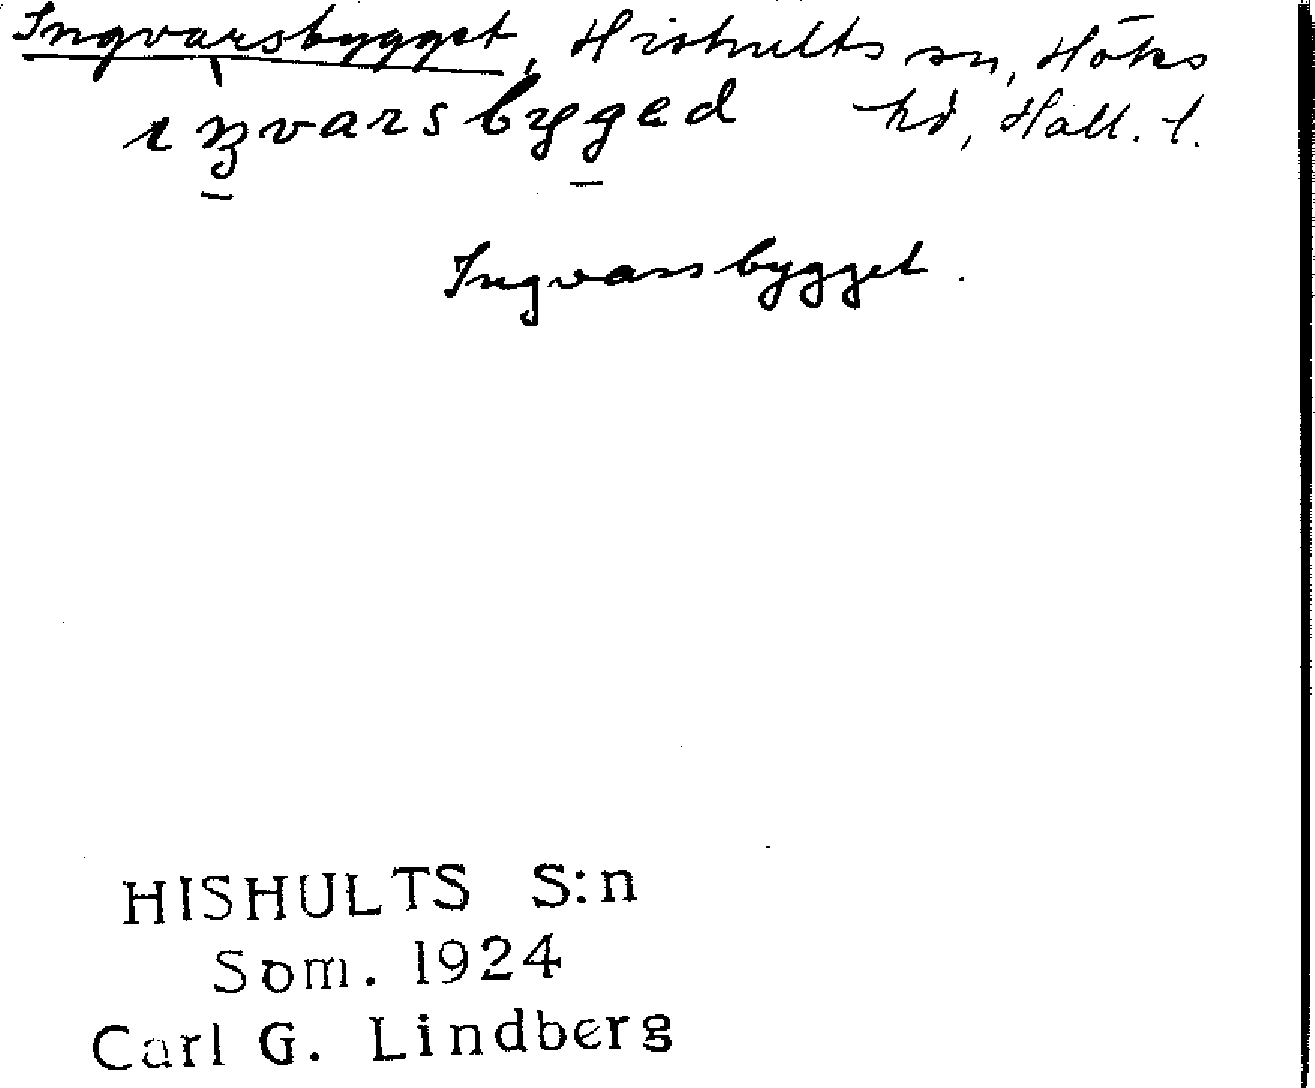 Ingvarsbygget, Hishults sn, Höks
ıŋvarsbygged hd, Hall. l.
Ingvarsbygget.
HISHULTS S:n
Som. 1924
Carl G. Lindberg